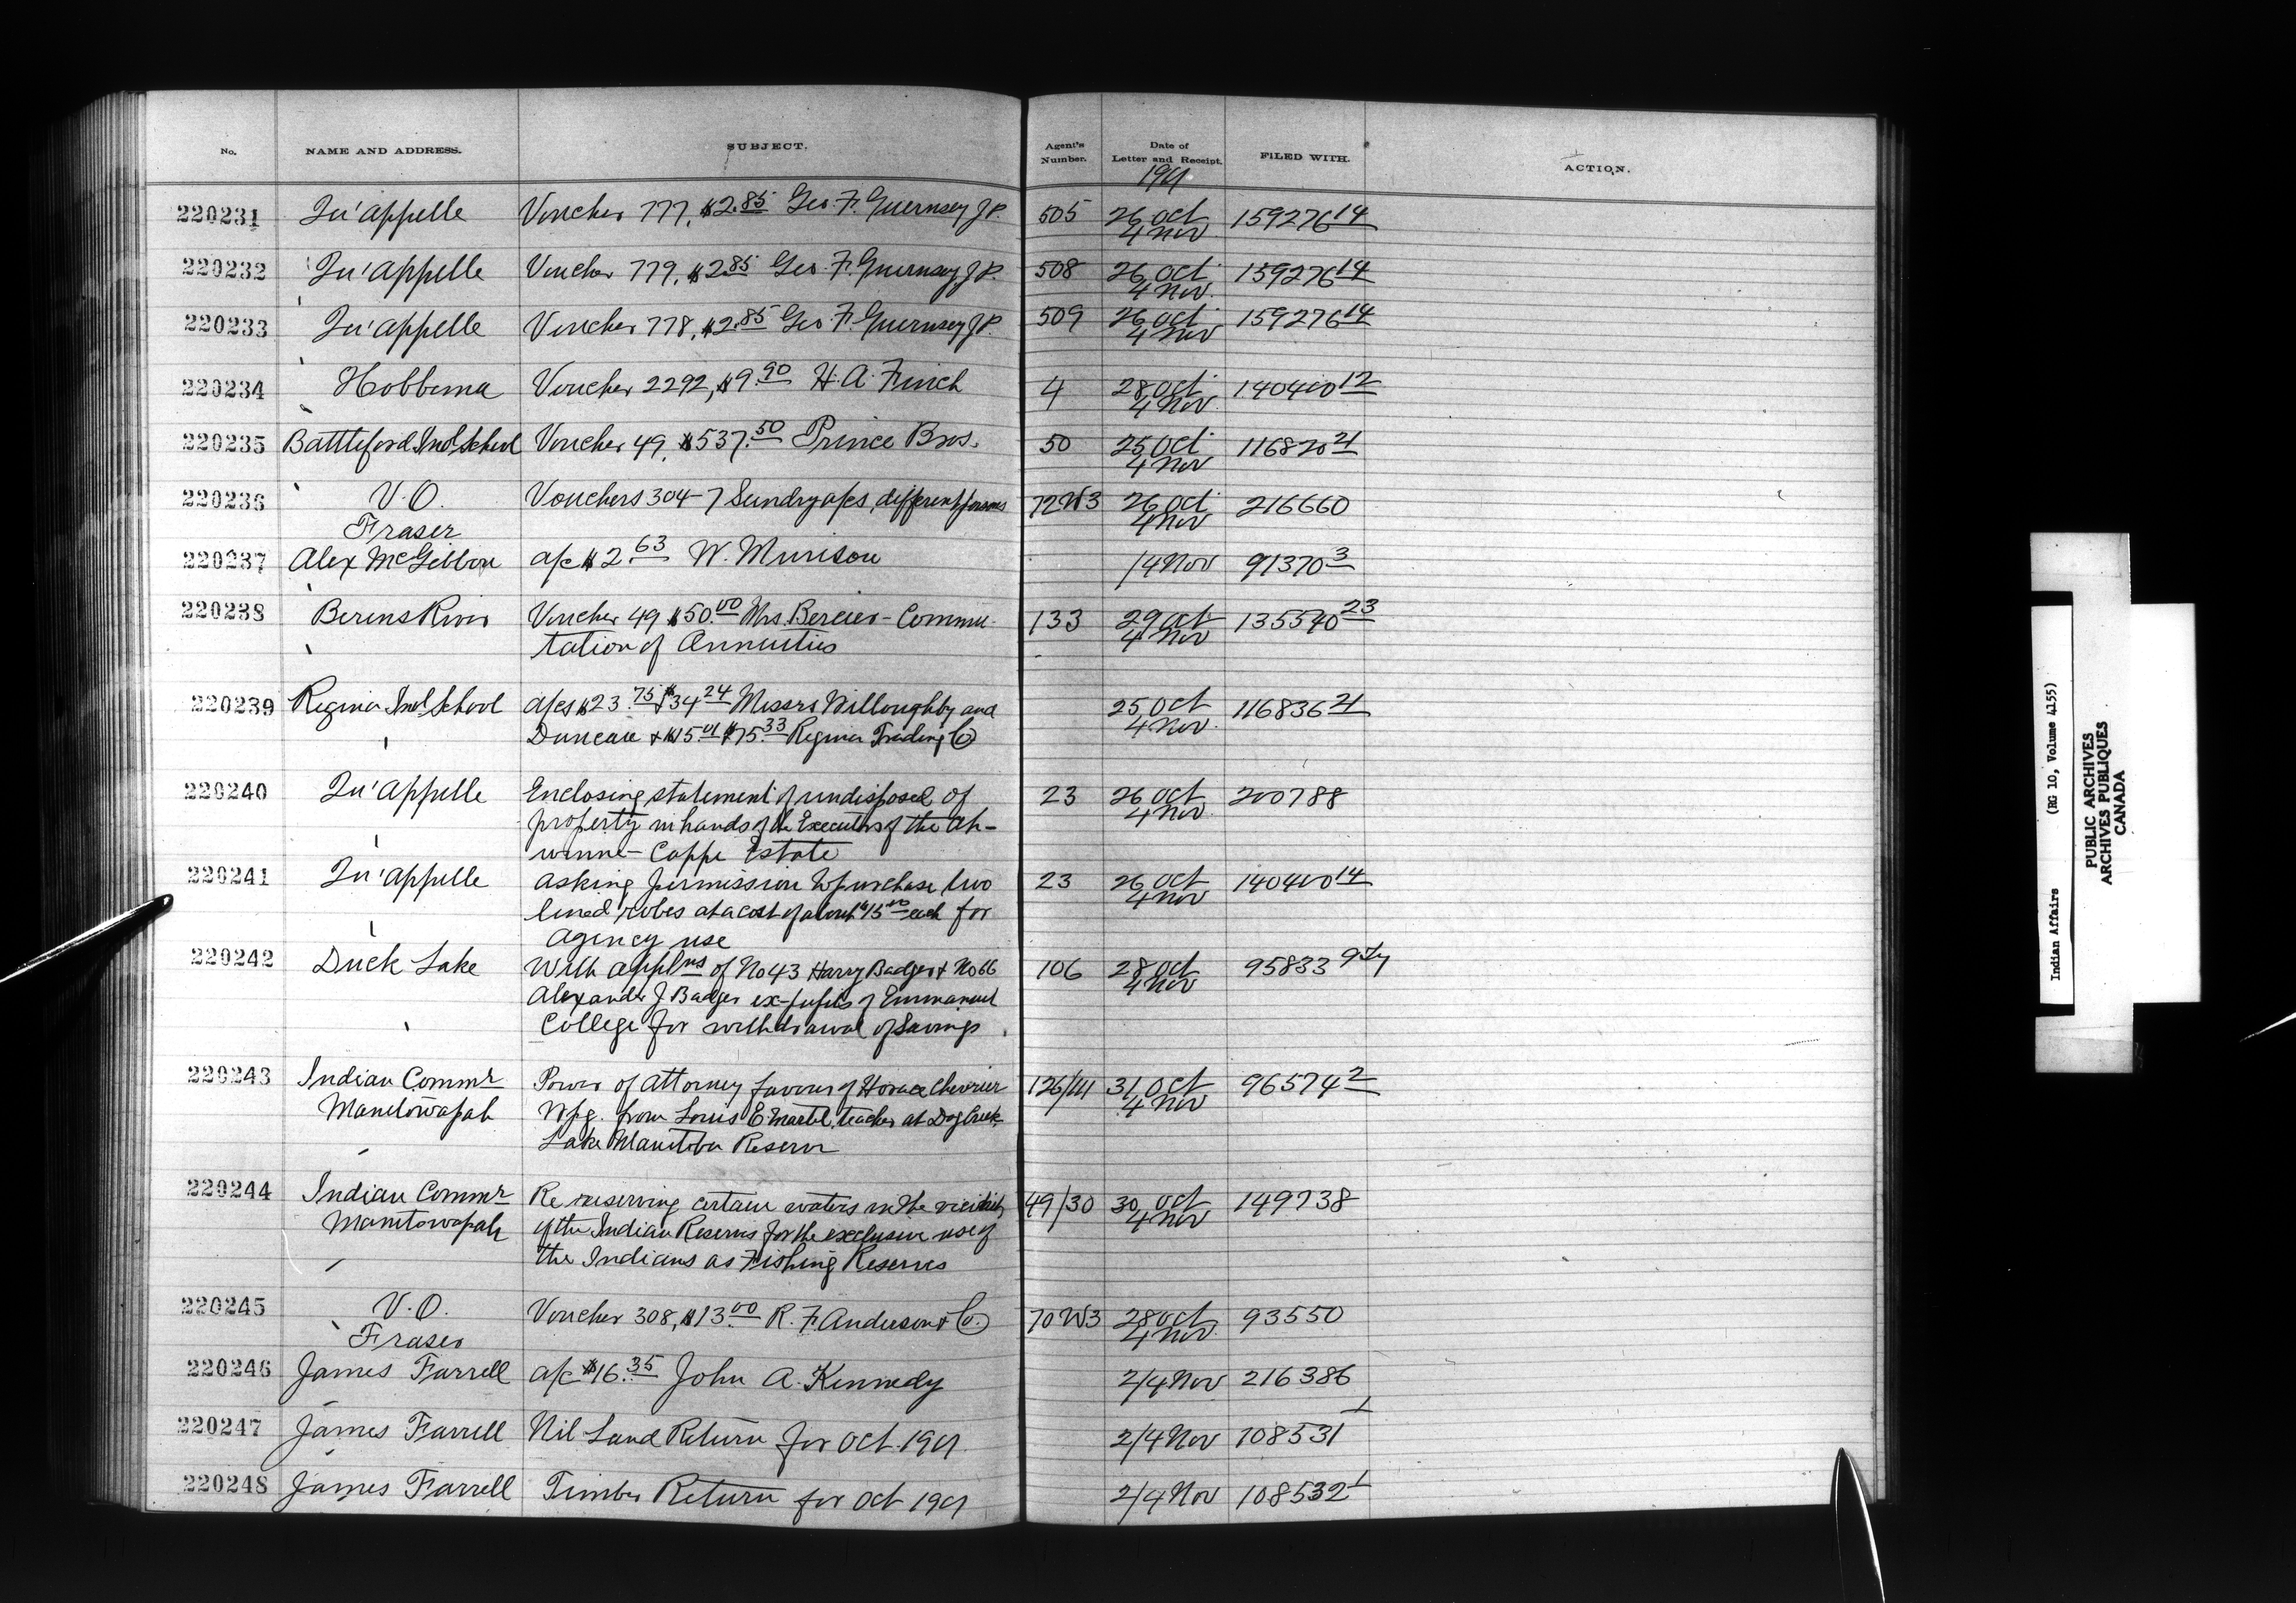 No. NAME AND ADDRESS. SUBJECT. Agent's Number. Date of Letter and Receipt. FILED WITH. ACTION.
1901
220231 Qu'appelle Voucher 777, $2.85 Geo. F. Guernsey J.P. 505 26 Oct 159276 14
4 Nov
220232 Qu'appelle Voucher 779, $2.85 Geo. F. Guernsey J.P. 508 26 Oct 159276 14
4 Nov
220233 Qu'appelle Voucher 778, $2.85 Geo. F. Guernsey J.P. 509 26 Oct 159276 14
4 Nov
220234 Hobbema Voucher 2292, $9.90 H. A. Finch 4 28 Oct 140400 12
4 Nov
220235 Battleford Ind School Voucher 49, $537.50 Prince Bros. 50 25 Oct 116820 21
4 Nov
220236 V. O. Vouchers 304-7 Sundry a/cs, different persons 72W3 26 Oct 216660
Fraser 4 Nov
220237 Alex McGibbon a/c $2.63 W. Murison 1/4 Nov 91370 3
220238 Berens River Voucher 49 $50.00 Mrs. Bercier - Commu- 133 29 Oct 135540 23
tation of Annuities 4 Nov
220239 Regina Ind School a/cs $23.75 $34.24 Messrs Willoughby and 25 Oct 116836 21
Duncan & $15.01 $75.33 Regina Trading Co 4 Nov
220240 Qu'appelle Enclosing statement of undisposed of 23 26 Oct 200788
property in hands of the Executors of the Ah- 4 Nov
winne- Cappe Estate
220241 Qu'appelle asking permission to purchase two 23 26 Oct 140400 14
lined robes at a cost of about $15.00 each for 4 Nov
agency use
220242 Duck Lake With applns of No 43 Harry Badger & No 66 106 28 Oct 95833
Alexander J Badger ex-pupils of Emmanuel 4 Nov
College for withdrawal of Savings
220243 Indian Commr Power of attorney favour of Horace Chevrier 126/111 31 Oct 96574 2
Manitowapah Wpg. from Louis E Martel, teacher at Dog Creek 4 Nov
Lake Manitoba Reserve
220244 Indian Commr Re reserving certain waters in the vicinity 49/30 30 Oct 149738
Manitowapah of the Indian Reserves for the exclusive use of 4 Nov
the Indians as Fishing Reserves
220245 V. O. Voucher 308, $13.00 R. F. Anderson & Co. 70W3 28 Oct 93550
Fraser 4 Nov
220246 James Farrell a/c $16.35 John A. Kennedy 2/4 Nov 216386
220247 James Farrell Nil Land Return for Oct. 1901 2/4 Nov 108531 1
220248 James Farrell Timber Return for Oct 1901 2/4 Nov 108532 1
Indian Affairs (RG 10, Volume 4155)
PUBLIC ARCHIVES
ARCHIVES PUBLIQUES
CANADA